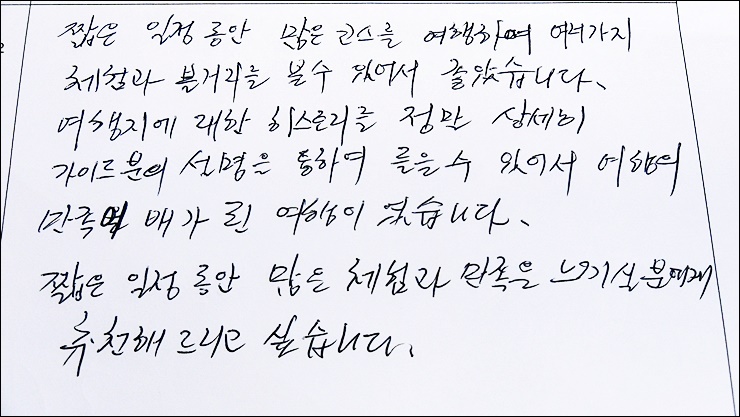 짧은 일정 동안 많은 코스를 여행하며 여러가지
체험과 볼거리를 볼수 있어서 좋았습니다.
여행지에 대한 히스토리를 정말 상세히
가이드분의 설명을 통하여 들을수 있어서 여행의
만족 배가 된 여행이 었습니다.
짧은 일정 동안 많은 체험과 만족을 느끼실분에게
추천해 드리고 싶습니다.